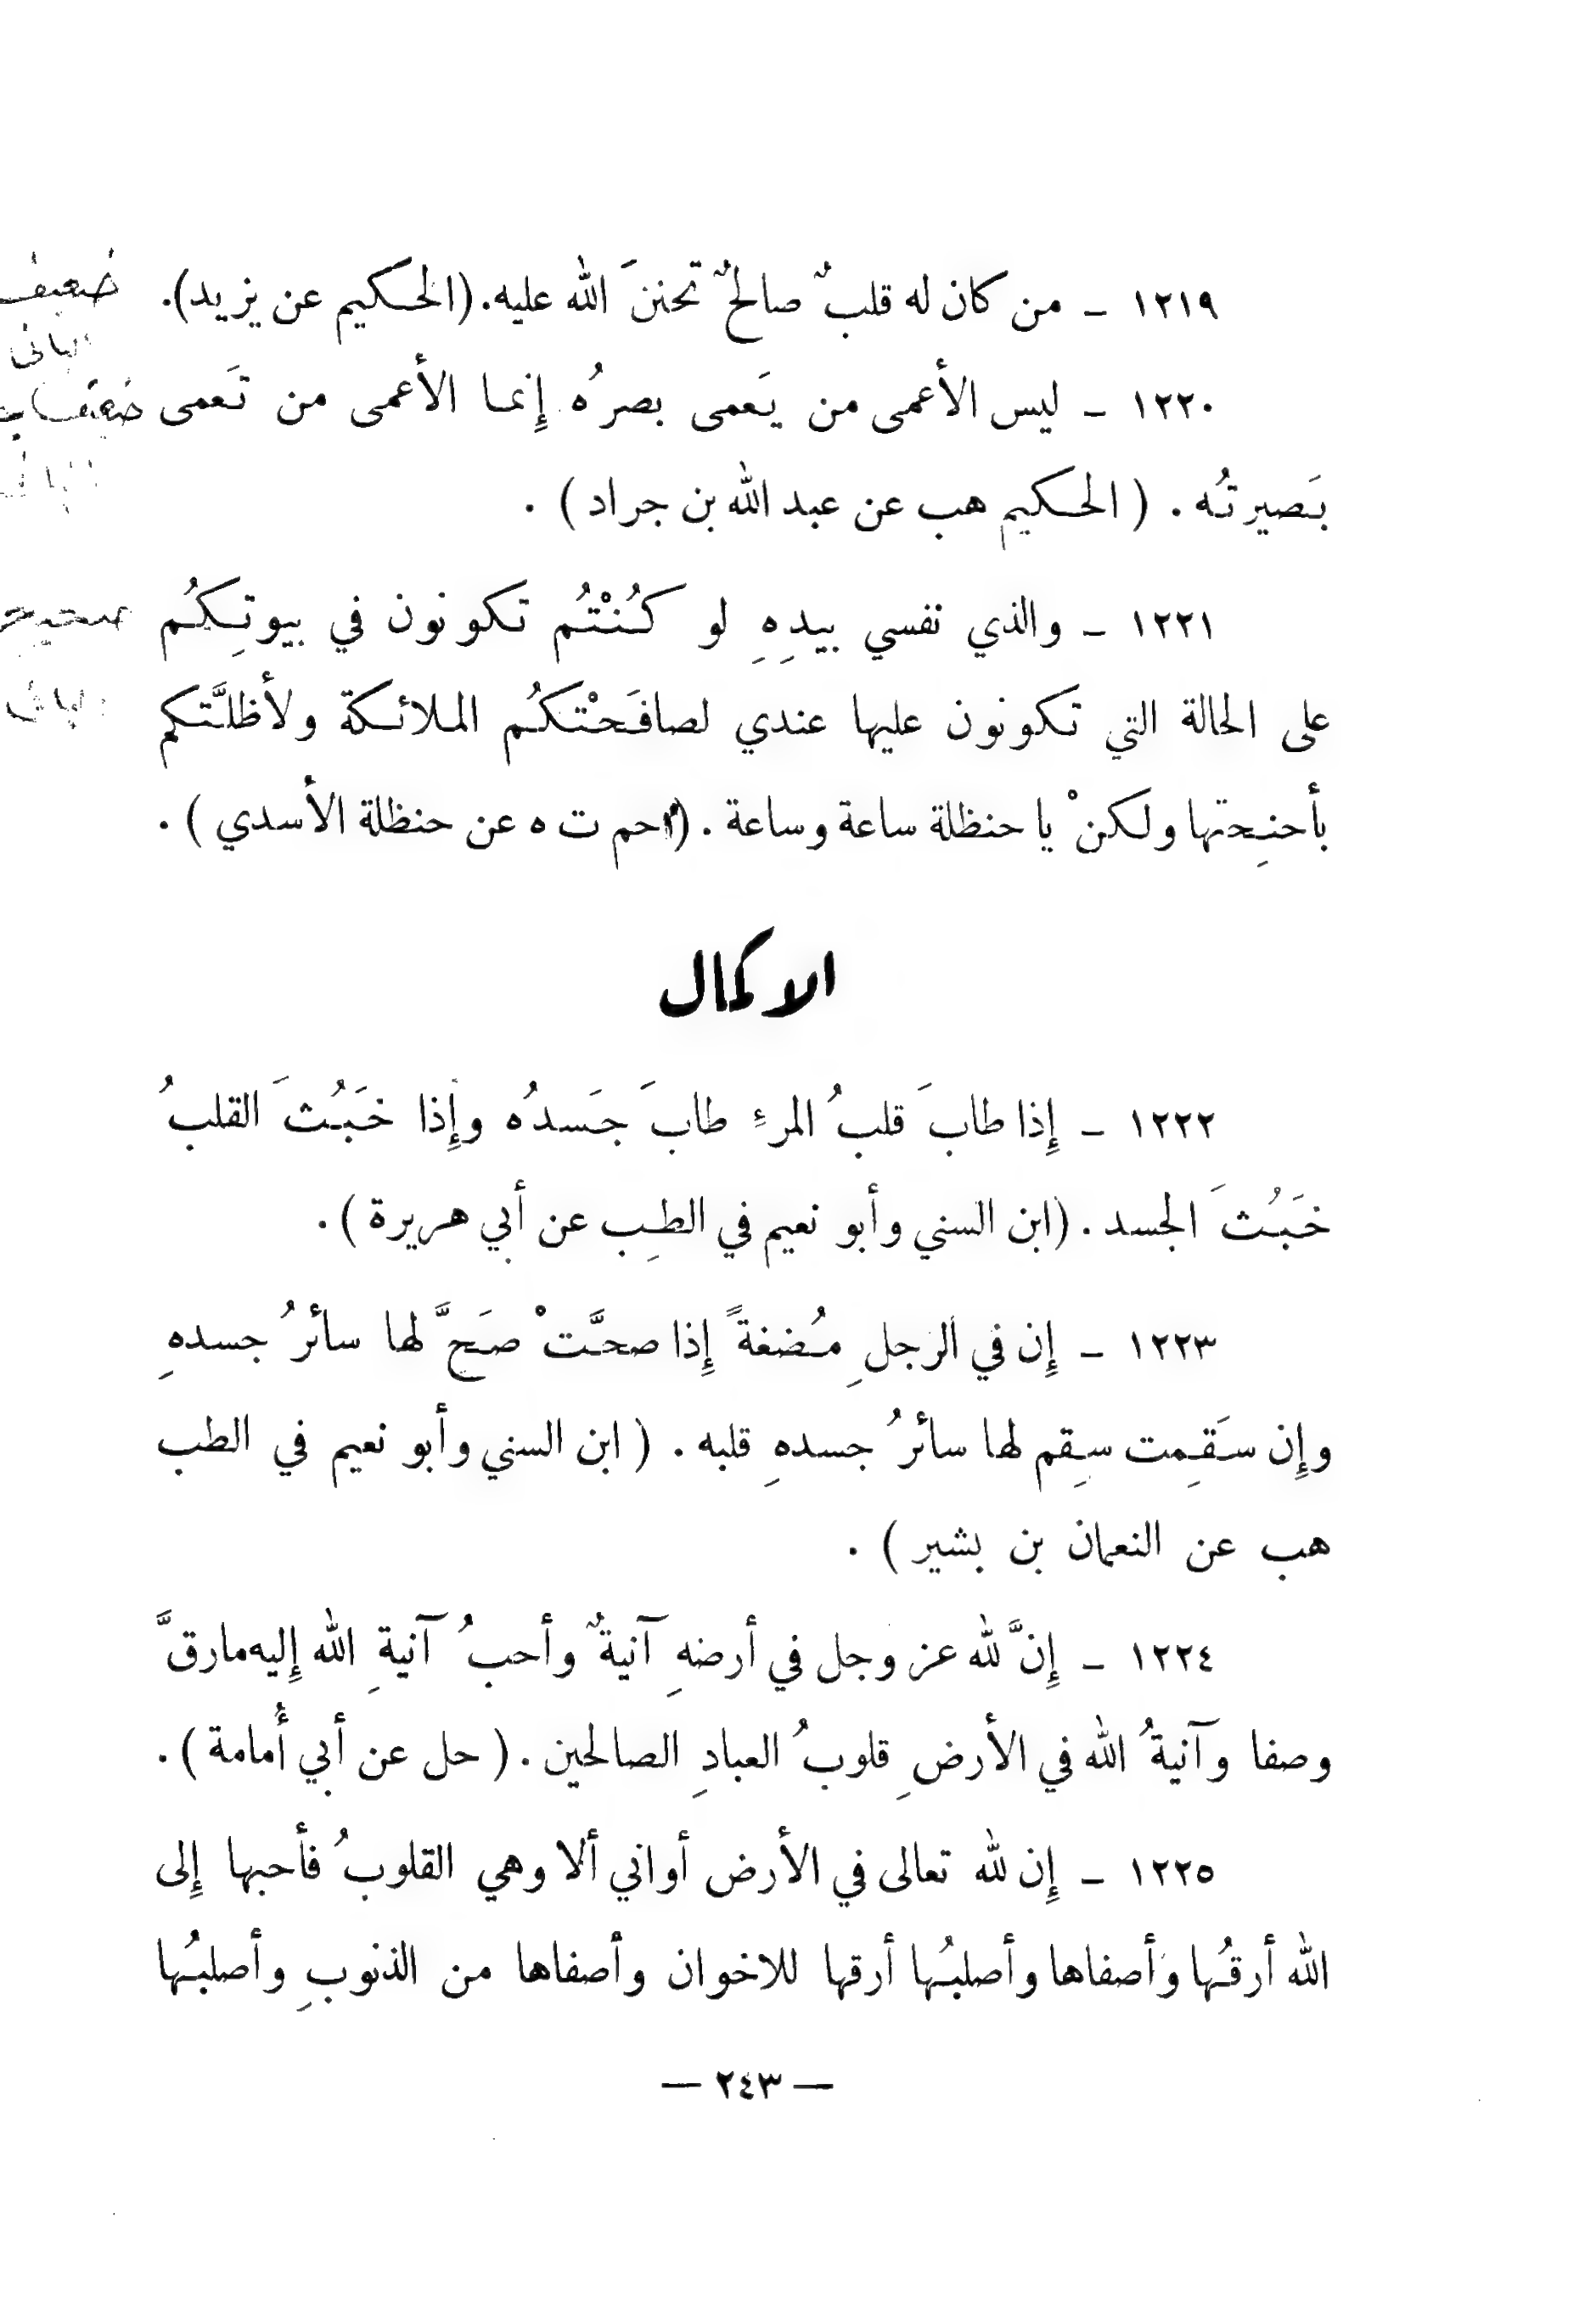 ١٢١٩ ـ من كان له قلبٌ صالحٌ تحننَ الله عليه. (الحكيم عن يزيد).
ضعيف
١٢٢٠ ـ ليس الأعمى من يَعمى بصرُه إِنما الأعمى من تَعمى
بَصيرتُه . ( الحكيم هب عن عبد الله بن جراد ) .
١٢٢١ ـ والذي نفسي بيدِهِ لو كُنْتُم تكونون في بيوتِكُم
صحيح
على الحالة التي تكونون عليها عندي لصافَحْتكُم الملائكة ولأظلَّتكم
بأجنِحتها ولكنْ يا حنظلة ساعة وساعة . ( حم ت ه عن حنظلة الأسدي ) .
الاكمال
١٢٢٢ ـ إِذا طابَ قلبُ المرءِ طابَ جَسدُه وإِذا خَبُثَ القلبُ
خَبُثَ الجسد . (ابن السني وأبو نعيم في الطِب عن أبي هريرة ) .
١٢٢٣ ـ إِن في الرجلِ مُضغةً إِذا صحَّتْ صَحَّ لها سائرُ جسدهِ
وإِن سَقِمت سِقم لها سائرُ جسدهِ قلبه . ( ابن السني وأبو نعيم في الطب
هب عن النعمان بن بشير ) .
١٢٢٤ ـ إِنَّ لله عز وجل في أرضهِ آنيةٌ وأحبُ آنيةِ الله إِليه مارقَّ
وصفا وآنيةُ الله في الأرضِ قلوبُ العبادِ الصالحين . ( حل عن أبي أُمامة ) .
١٢٢٥ ـ إِن لله تعالى في الأرض أواني ألا وهي القلوبُ فأحبها إِلى
الله أرقُها وأصفاها وأصلبُها أرقها للاخوان وأصفاها من الذنوبِ وأصلبُها
— ٢٤٣ —